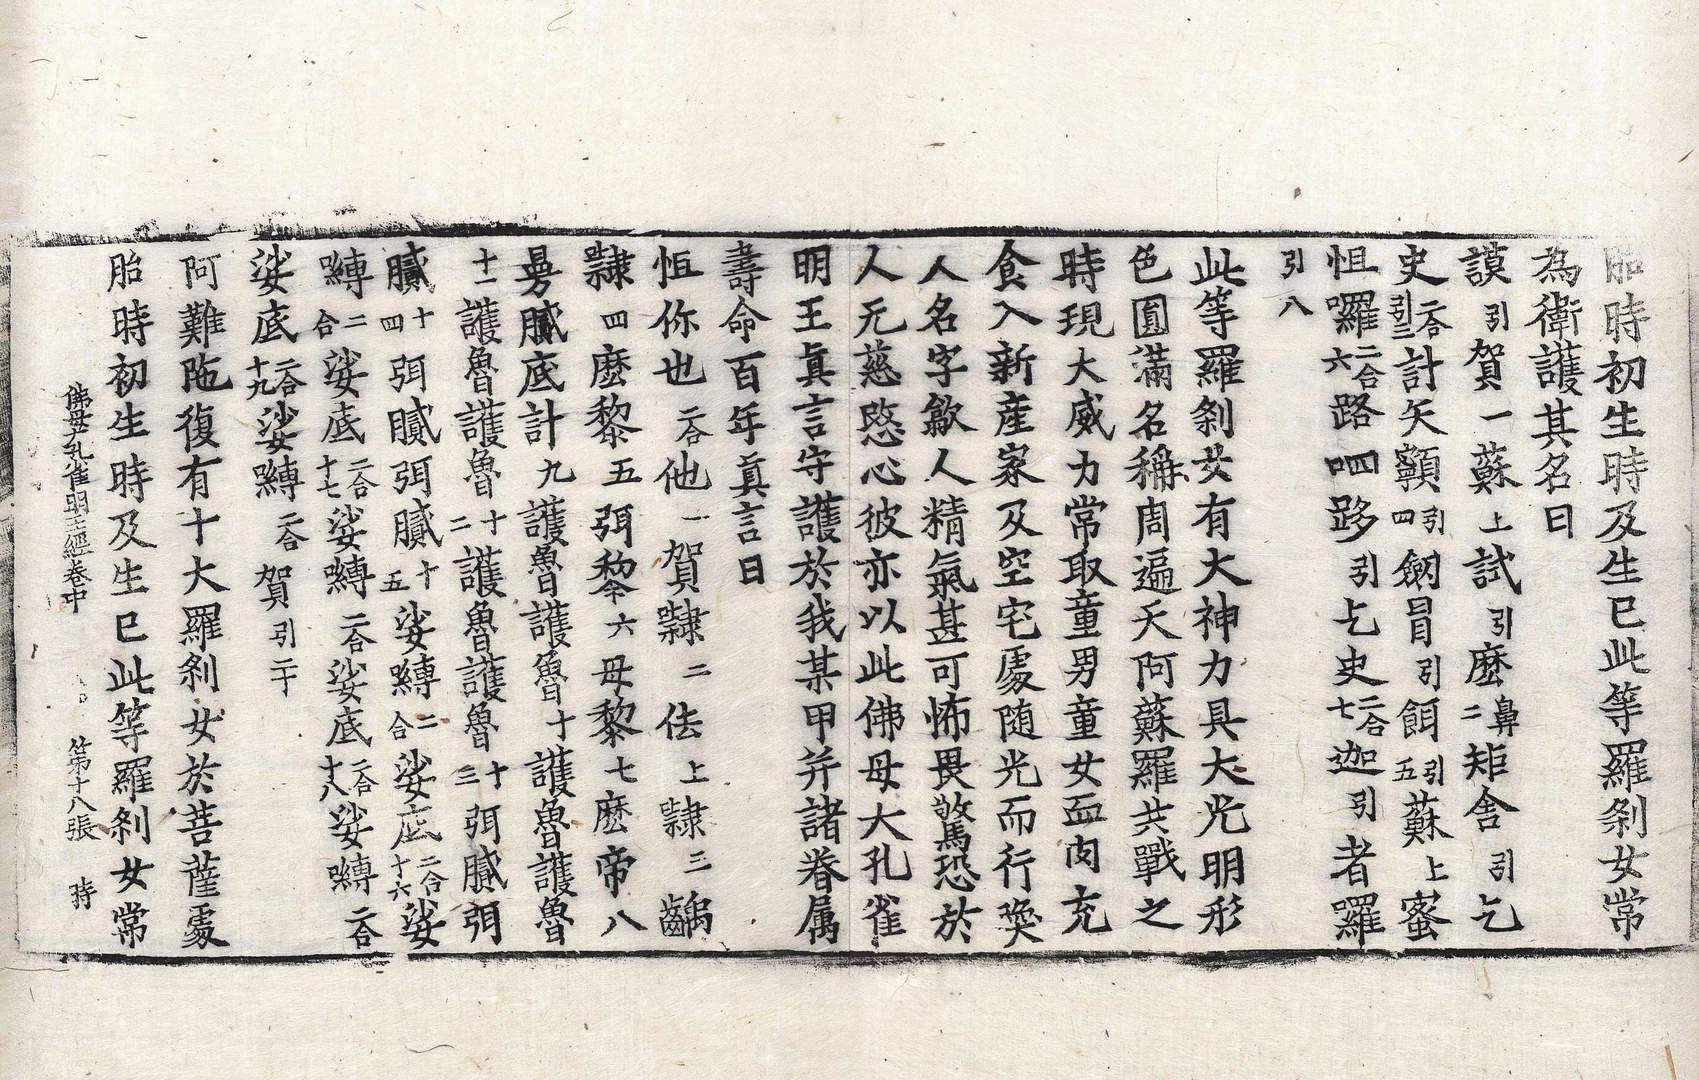 胎時初生時及生已此等羅剎女常
為衛護其名曰
謨引賀一蘇上試引麼鼻二矩舍引乞
史二合引三計矢顊引四劒冒引餌引五蘇上蜜
怛囉二合六路呬路引乞史二合七迦引者囉
引八
此等羅剎女有大神力具大光明形
色圓滿名稱周遍天阿蘇羅共戰之
時現大威力常取童男童女血肉充
食入新產家及空宅處随光而行喚
人名字歙人精氣甚可怖畏驚恐於
人无慈愍心彼亦以此佛母大孔雀
明王真言守護於我某甲并諸眷属
壽命百年真言曰
怛你也二合他一賀隸二佉上隸三齲
隸四麼黎五弭黎六母黎七麼帝八
曼膩底計九護魯護魯十護魯護魯
十一護魯護魯十二護魯護魯十三弭膩弭
膩十四弭膩弭膩十五娑嚩二合娑底二合十六娑
嚩二合娑底二合十七娑嚩二合娑底二合十八娑嚩二合
娑底二合十九娑嚩二合賀引二十
阿難陁復有十大羅剎女於菩薩處
胎時初生時及生已此等羅剎女常
佛母孔雀明王經卷中 第十八張 時